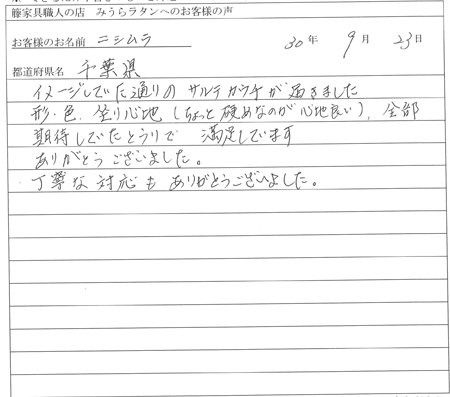 籐家具職人の店　みうらラタンへのお客様の声
お客様のお名前　ニシムラ　30年　9月　23日
都道府県名　千葉県
イメージしてた通りの サルテカウチが届きました
形・色、坐り心地（ちょっと硬めなのが心地良い）、全部
期待していたとうりで 満足しています
ありがとうございました。
丁寧な対応も ありがとうございました。